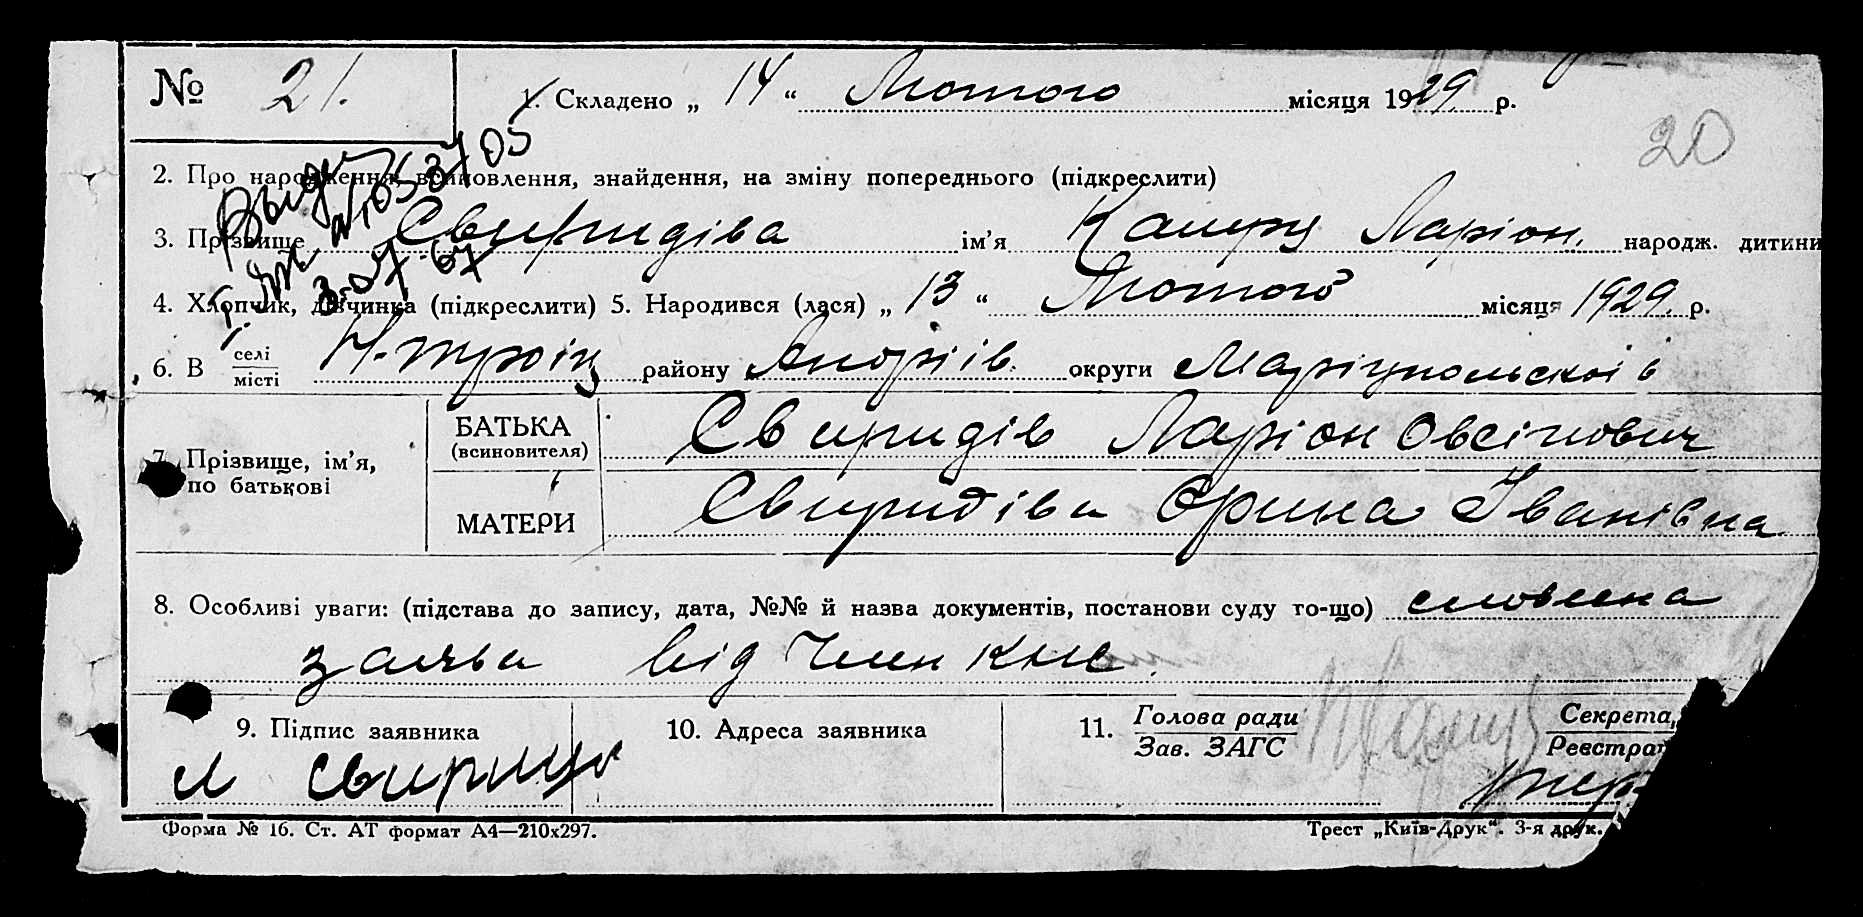 № 21. 1. Складено „ 14 “ Лютого місяця 1929 р.
20
2. Про народження, всиновлення, знайдення, на зміну попереднього (підкреслити)
3. Прізвище Свиридіва ім’я Ларіон. народж. дитини
4. Хлопчик, дівчинка (підкреслити) 5. Народився (лася) „ 13 “ Лютого місяця 1929. р.
6. В селі/місті районy Андріїв. округи Маріупольської
7. Прізвище, ім’я, по батькові
БАТЬКА (всиновителя) Свиридів Ларіон Овсійович
МАТЕРИ Свиридіва Орина Іванівна
8. Особливі уваги: (підстава до запису, дата, №№ й назва документів, постанови суду то-що) словесна
заява від член КНС
9. Підпис заявника 10. Адреса заявника 11. Голова ради/Зав. ЗАГС Секрета Реєстрат
Л Свирид
Форма № 16. Ст. АТ формат А4—210х297. Трест „Київ-Друк“. 3-я друк.